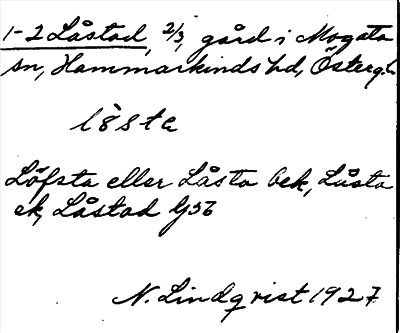 1-2 Låstad, 2/3, gård i Mogata
sn, Hammarkinds hd, Österg.l.
lö̀sta
Löfsta eller Låsta bek, Låsta
ek, Låstad Gsb
N. Lindqvist 1927